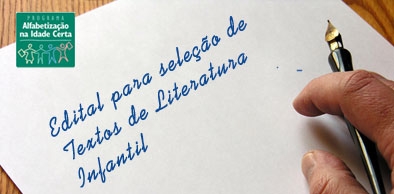 PROGRAMA
Alfabetização
na Idade Certa
Edital para seleção de
Textos de Literatura
Infantil